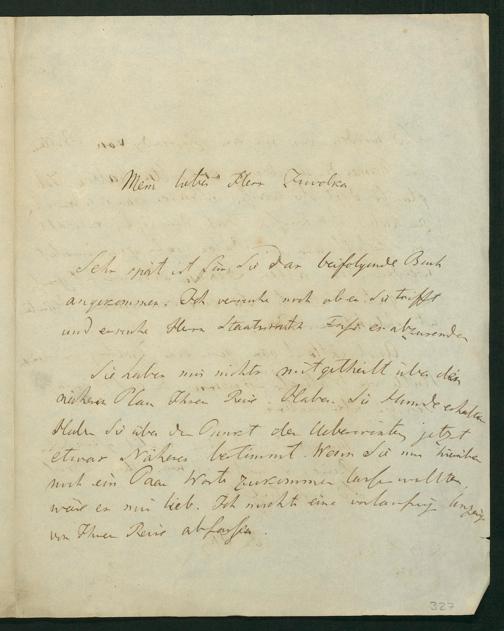 Mein lieber Herr Ziwolka
Sehr spät ist für Sie das beifolgende Buch
angekommen. Ich versuche noch ob es Sie trifft
und ersuche Herrn Staatsrath Fuss es abzusenden
Sie haben mir nichts mitgetheilt über den
nähern Plan Ihrer Reise. Haben Sie Hunde erhalten
Haben Sie über den Punct des Ueberwinterns jetzt
etwas Näheres bestimmt. Wenn Sie mir hierüber
noch ein Paar Worte zukommen lassen wollten,
wäre es mir lieb. Ich möchte eine vorläufige Anzeige
von Ihrer Reise abfassen.
327